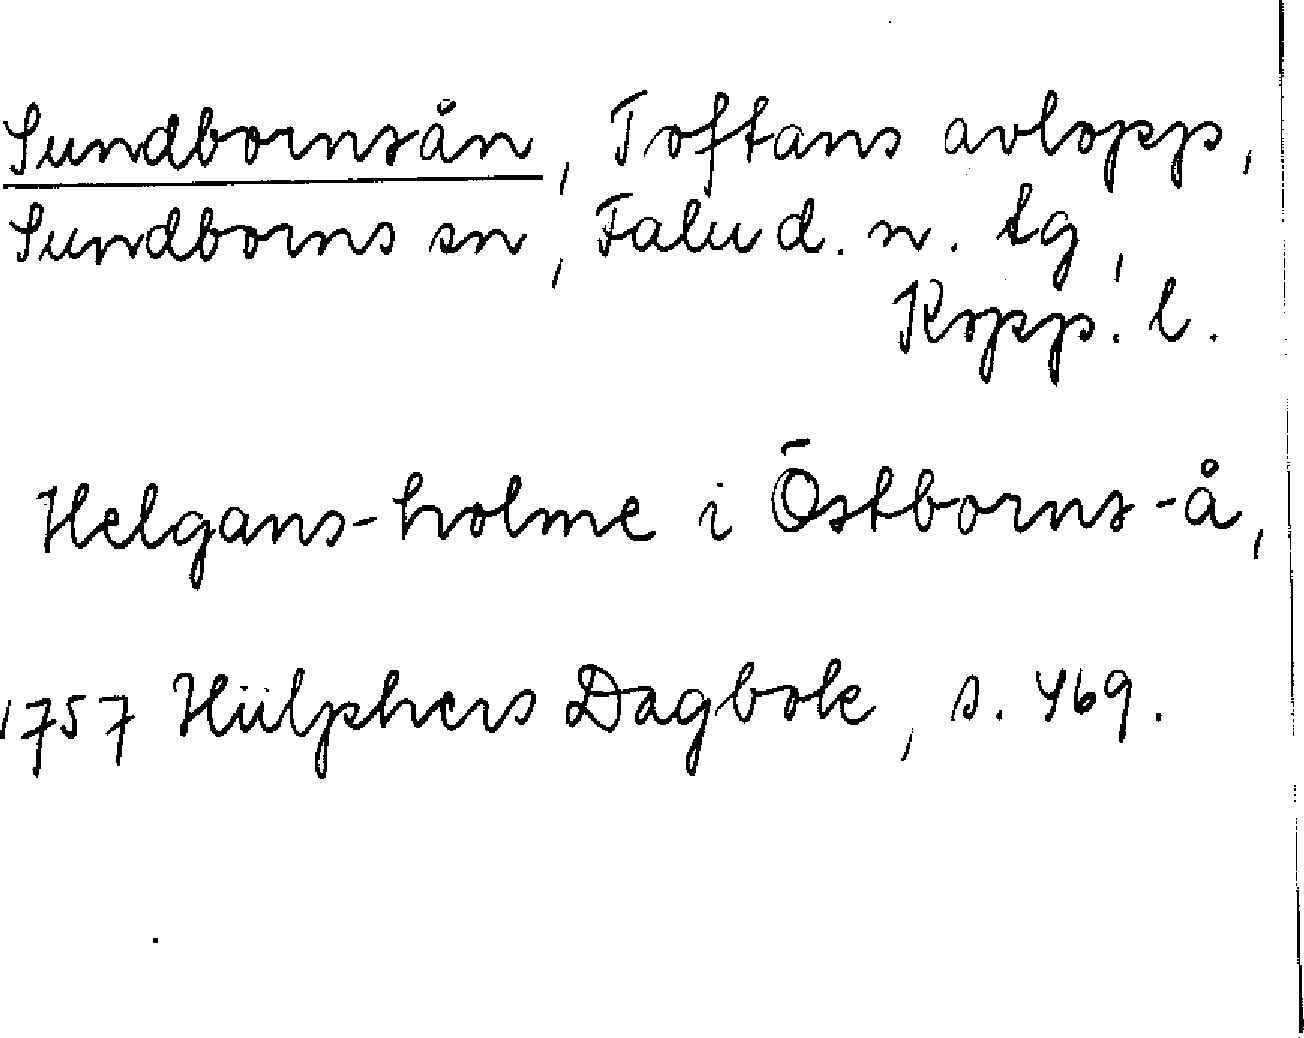 Sundbornsån, Toftans avlopp,
Sundborns sn, Falu d. n. tg,
Kopp. l.
Helgans-holme i Östborns-å,
1757 Hülphers Dagbok, s. 469.